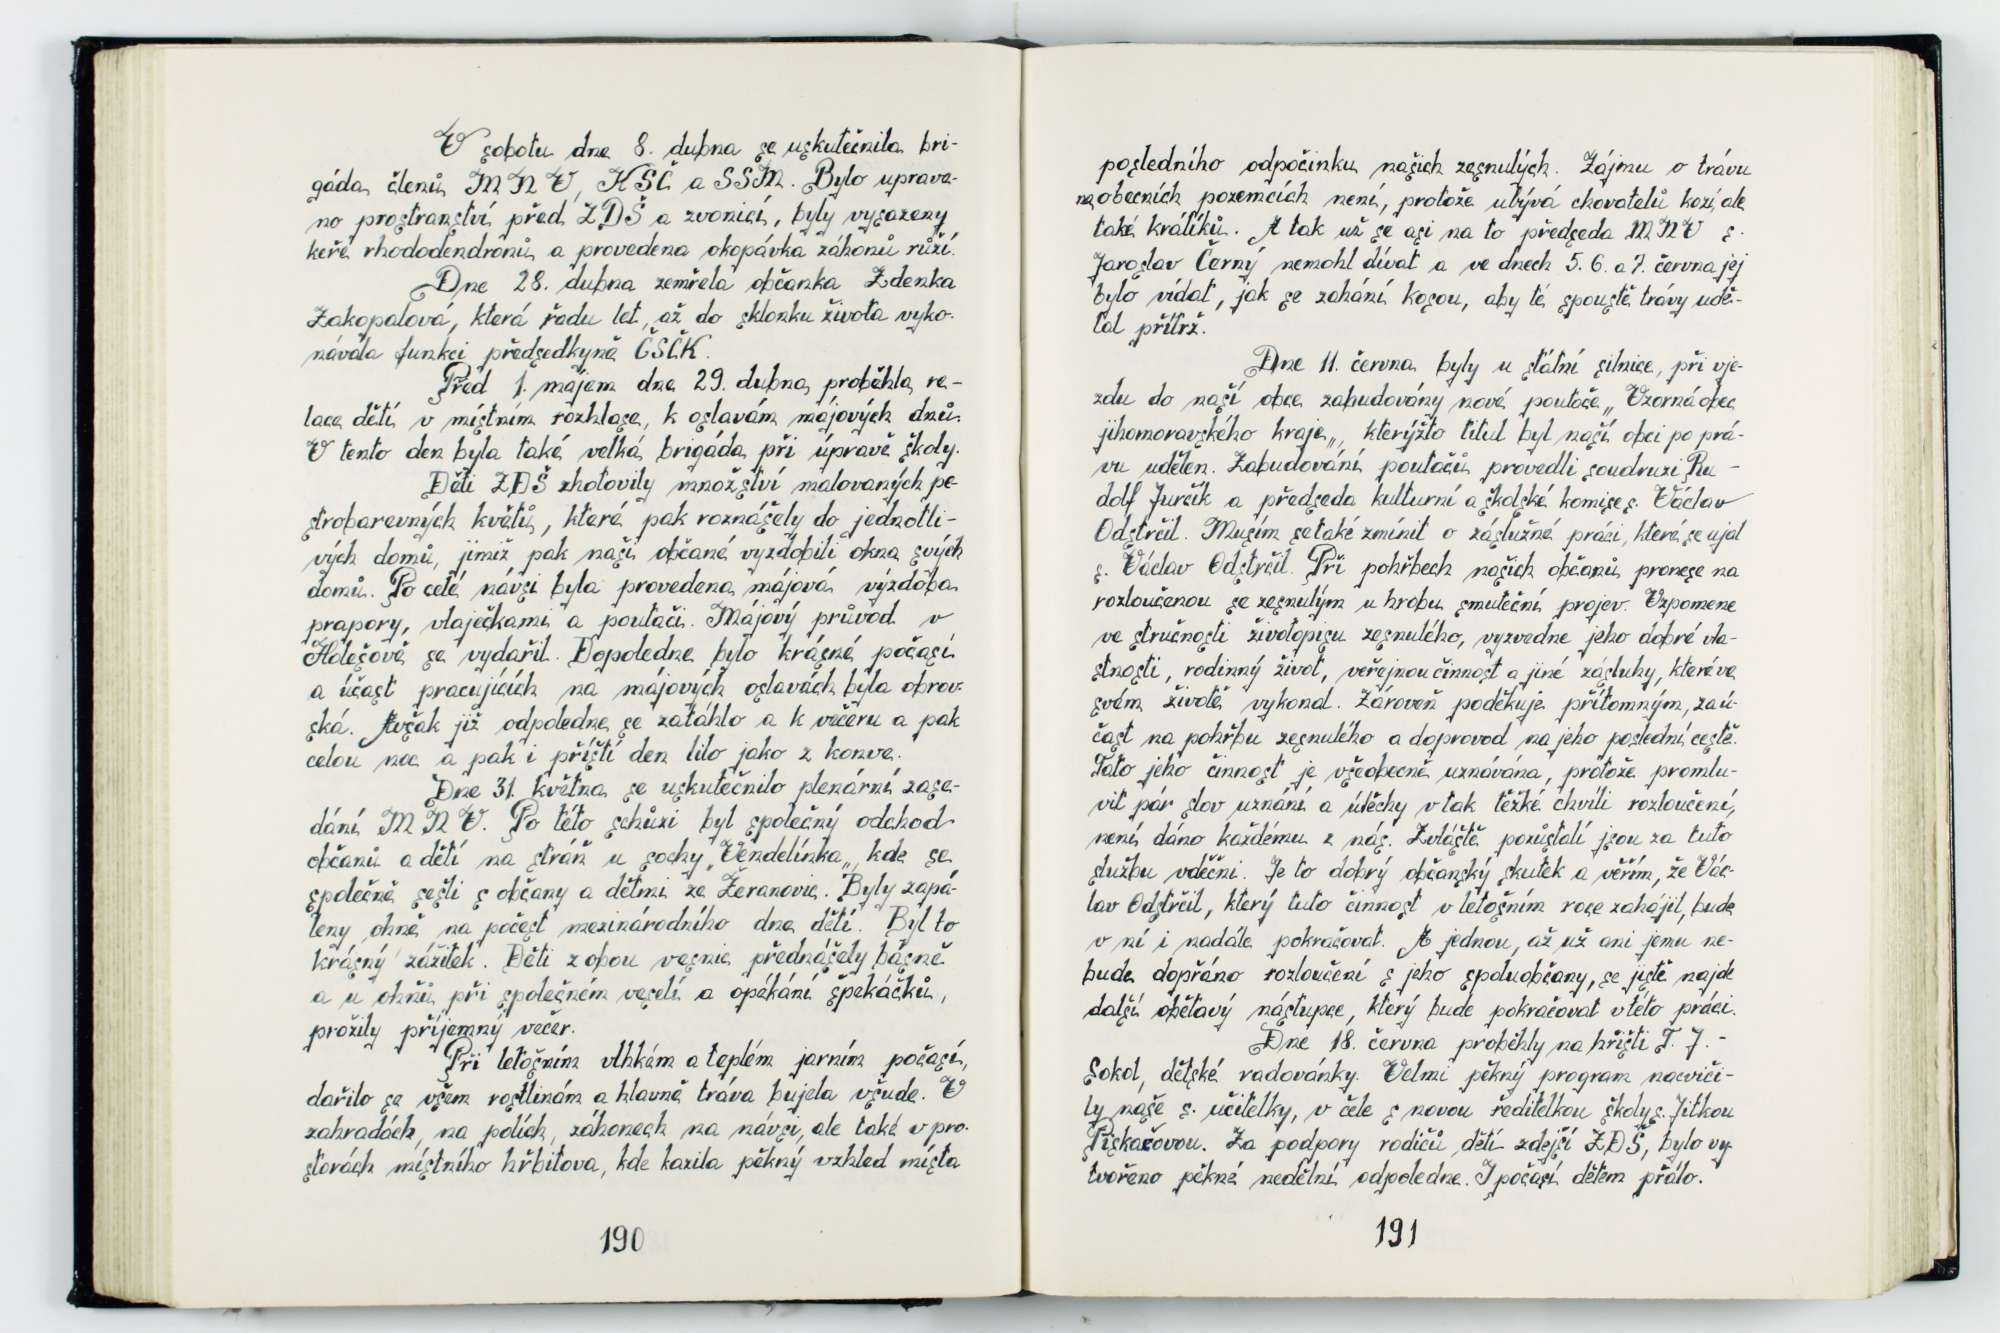 V sobotu dne 8. dubna se uskutečnila bri-
gáda členů MNV, KSČ a SSM. Bylo uprave-
no prostranství před ZDŠ a zvonicí, byly vysazeny
keře rhododendronů a provedena okopávka záhonů růží.
Dne 28. dubna zemřela občanka Zdenka
Zakopalová, která řadu let, až do sklonku života vyko-
návala funkci předsedkyně ČSČK.
Před 1. májem dne 29. dubna proběhla re-
lace dětí v místním rozhlase, k oslavám májových dnů.
V tento den byla také velká brigáda při úpravě školy.
Děti ZDŠ zhotovily množství malovaných pe-
strobarevných květů, které pak roznášely do jednotli-
vých domů, jimiž pak naši občané vyzdobili okna svých
domů. Po celé návsi byla provedena májová výzdoba
prapory, vlaječkami a poutači. Májový průvod v
Holešově se vydařil. Dopoledne bylo krásné počasí
a účast pracujících na májových oslavách byla obrov-
ská. Avšak již odpoledne se zatáhlo a k večeru a pak
celou noc a pak i příští den lilo jako z konve.
Dne 31. května se uskutečnilo plenární zase-
dání MNV. Po této schůzi byl společný odchod
občanů a dětí na stráň u sochy „Vendelínka„, kde se
společně sešli s občany a dětmi ze Žeranovic. Byly zapá-
leny ohně na počest mezinárodního dne dětí. Byl to
krásný zážitek. Děti z obou vesnic přednášely básně
a u ohňů při společném veselí a opékání špekáčků,
prožily příjemný večer.
Při letošním vlhkém a teplém jarním počasí,
dařilo se všem rostlinám a hlavně tráva bujela všude. V
zahradách, na polích, záhonech na návsi, ale také v pro-
storách místního hřbitova, kde kazila pěkný vzhled místa
190
posledního odpočinku našich zesnulých. Zájmu o trávu
na obecních pozemcích není, protože ubývá chovatelů koz, ale
také králíků. A tak už se asi na to předseda MNV s.
Jaroslav Černý nemohl dívat a ve dnech 5. 6. a 7. června jej
bylo vídat, jak se zahání kosou, aby té spouště trávy udě-
lal přítrž.
Dne 11. června byly u státní silnice, při vje-
zdu do naší obce zabudovány nové poutače „Vzorná obec
jihomoravského kraje„, kterýžto titul byl naší obci po prá-
vu udělen. Zabudování poutačů provedli soudruzi Ru-
dolf Jurčík a předseda kulturní a školské komise s. Václav
Odstrčil. Musím se také zmínit o záslužné práci, které se ujal
s. Václav Odstrčil. Při pohřbech našich občanů pronese na
rozloučenou se zesnulým u hrobu smuteční projev. Vzpomene
ve stručnosti životopisu zesnulého, vyzvedne jeho dobré vla-
stnosti, rodinný život, veřejnou činnost a jiné zásluhy, které ve
svém životě vykonal. Zároveň poděkuje přítomným, za ú-
čast na pohřbu zesnulého a doprovod na jeho poslední cestě.
Tato jeho činnost je všeobecně uznávána, protože promlu-
vit pár slov uznání a útěchy v tak těžké chvíli rozloučení,
není dáno každému z nás. Zvláště pozůstalí jsou za tuto
službu vděčni. Je to dobrý občanský skutek a věřím, že Vác-
lav Odstrčil, který tuto činnost v letošním roce zahájil, bude
v ní i nadále pokračovat. A jednou, až už ani jemu ne-
bude dopřáno rozloučení s jeho spoluobčany, se jistě najde
další obětavý nástupce, který bude pokračovat v této práci.
Dne 18. června proběhly na hřišti T. J. -
Sokol, dětské radovánky. Velmi pěkný program nacviči-
ly naše s. učitelky, v čele s novou ředitelkou školy s. Jitkou
Pískačovou. Za podpory rodičů dětí zdejší ZDŠ, bylo vy-
tvořeno pěkné nedělní odpoledne. I počasí dětem přálo.
191